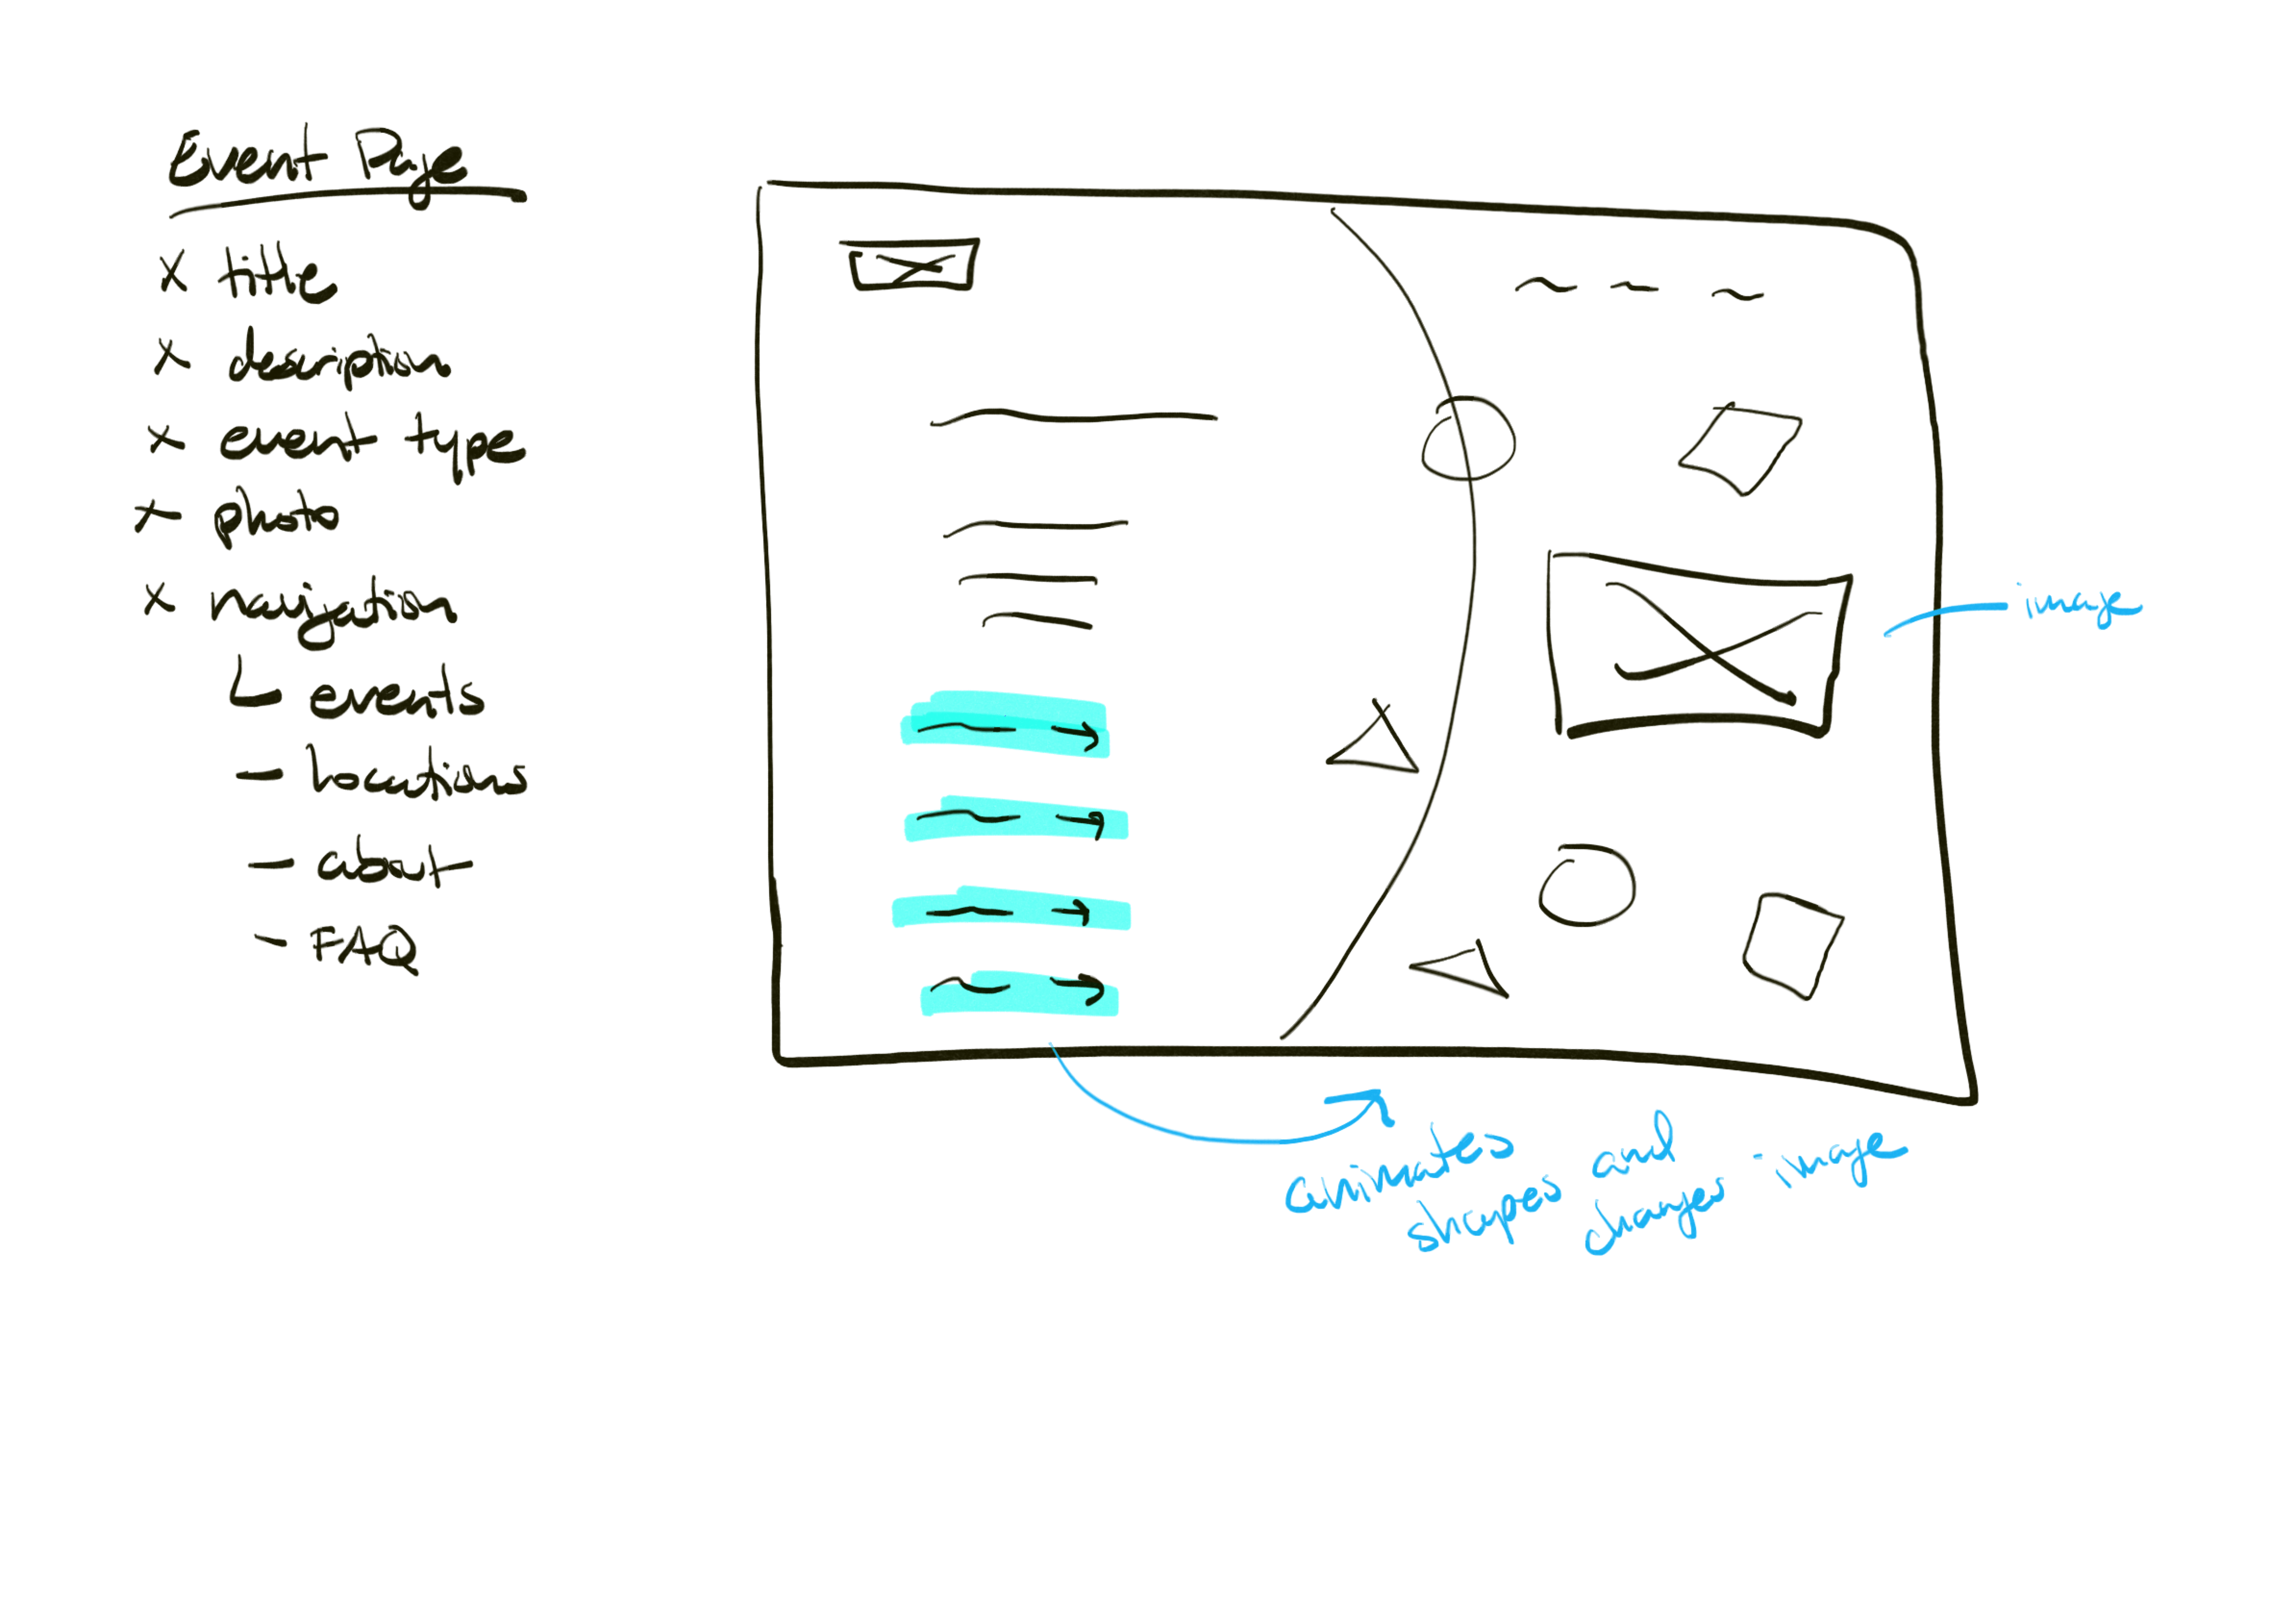 Event Page
x title
x description
x event type
x photo
x navigation
events
- locations
- about
- FAQ
image
animates
shapes and
changes image